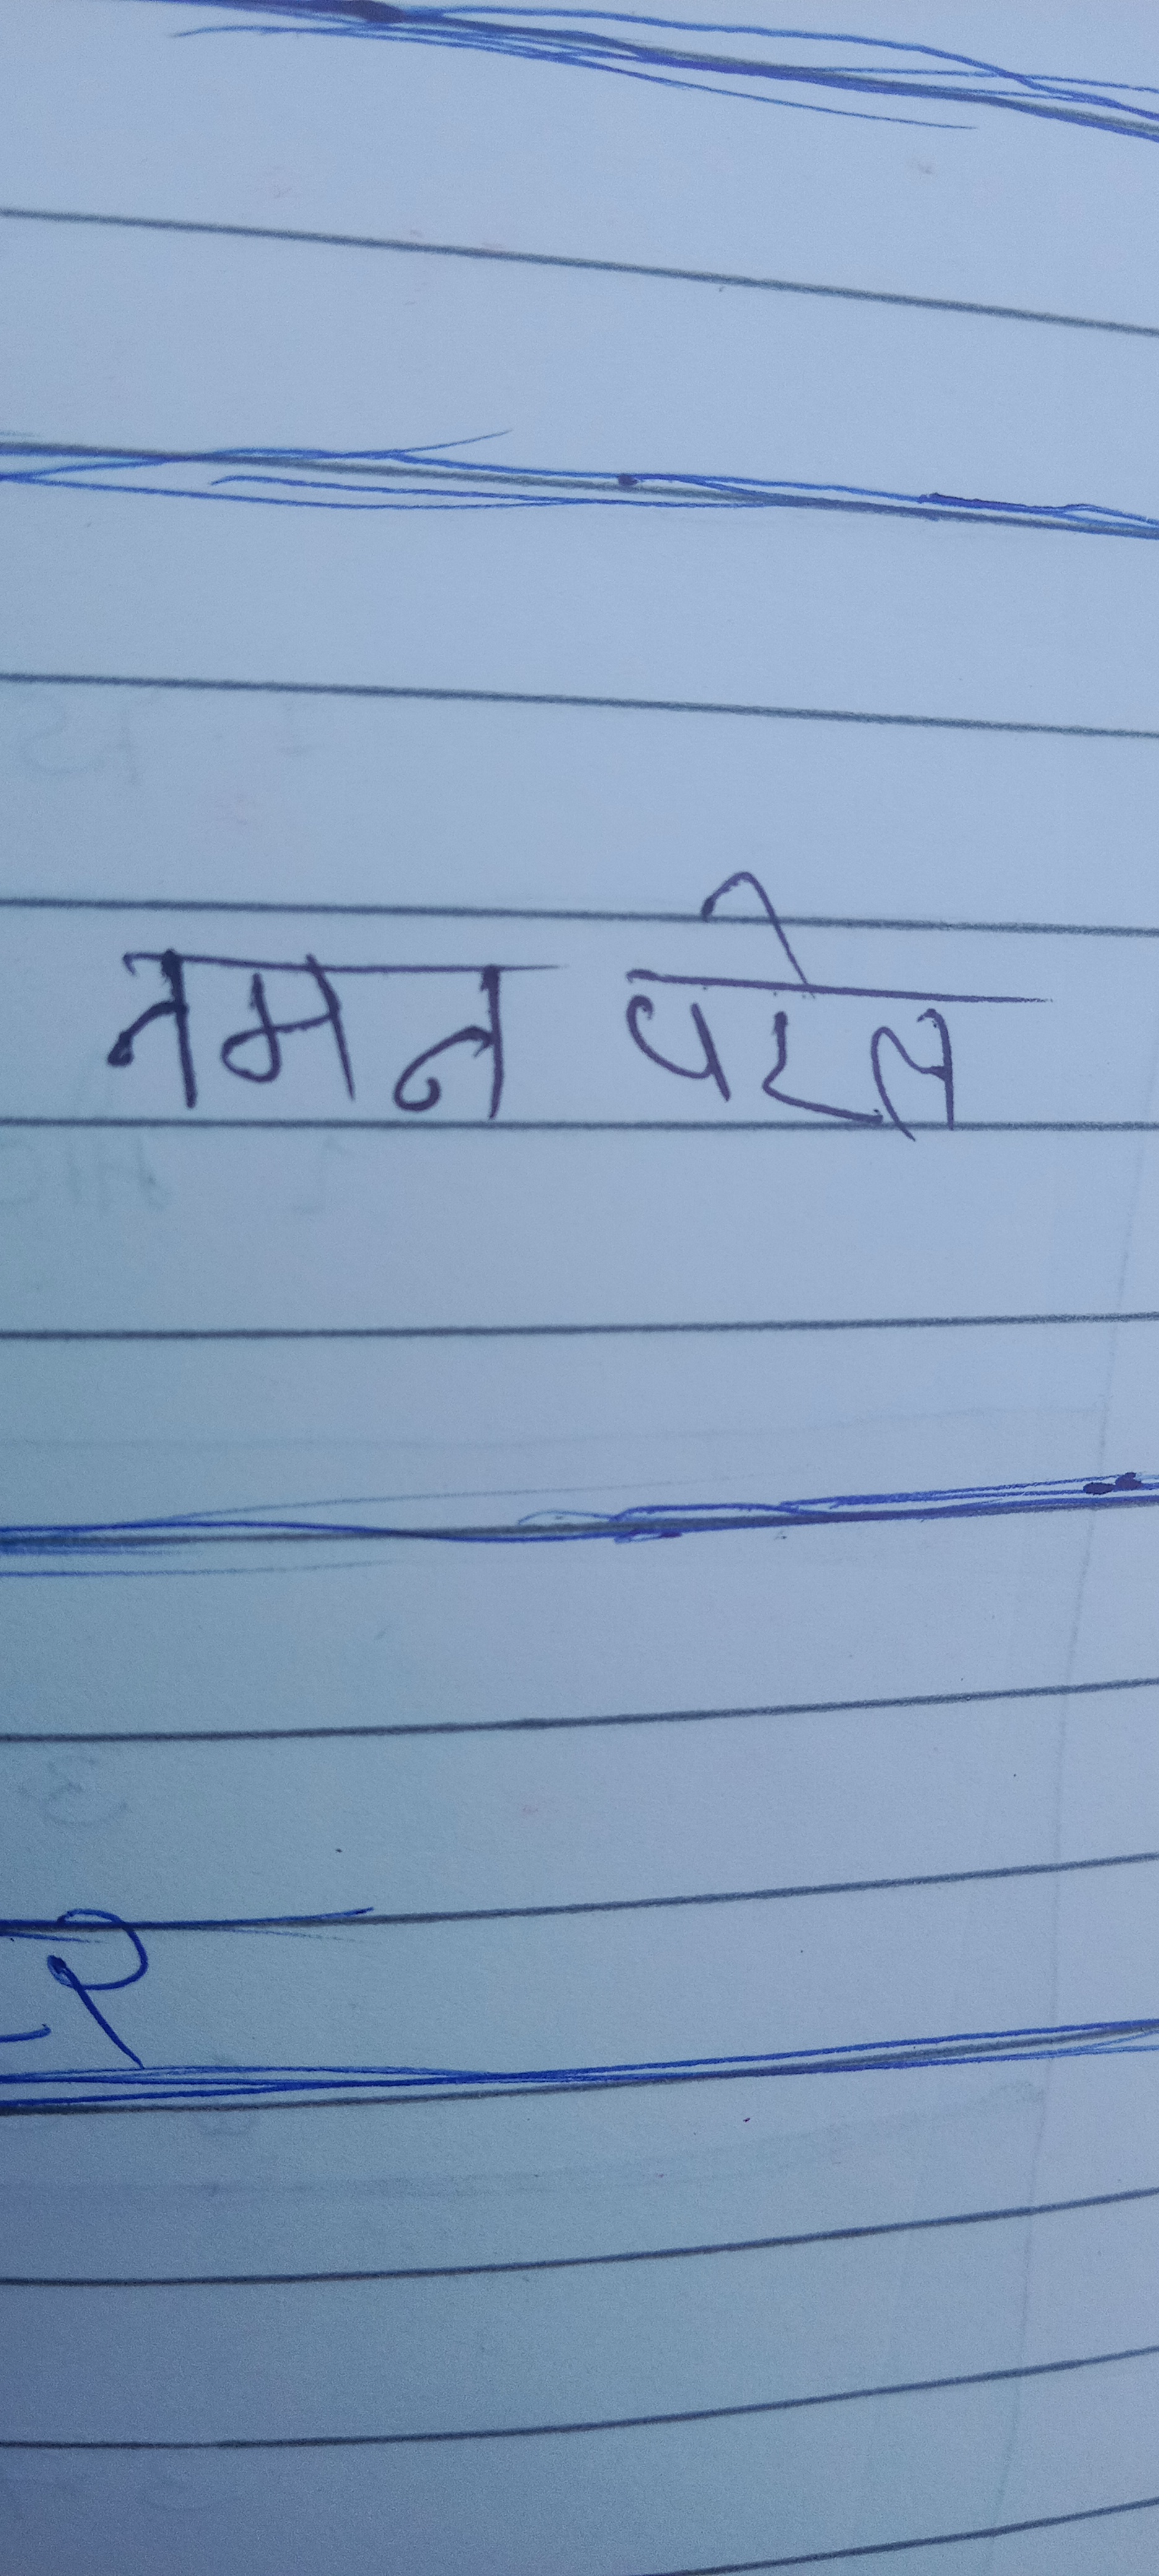 नमन पटेल
-२